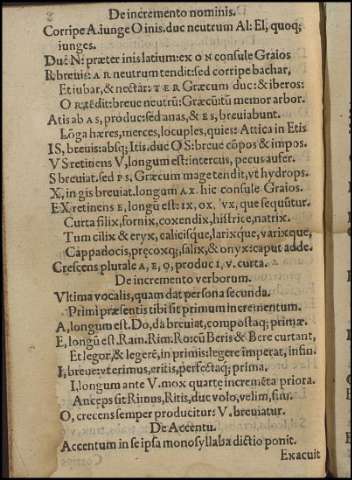 De incremento nominis.
Corripe A.iunge O inis.duc neutrum Al: El, quoq;
iunges.
Duc N: præter inis latium: ex o N consule Graios
R: breuis: A R neutrum tendit: sed corripe bachar,
Et iubar, & nectar: T E R Græcum duc: & iberos:
O R, tēdit: breue neutrū: Græcūtū memor arbor.
Atis ab A S, produc: sed anas, & E S, breuiabunt.
Lōga hæres, merces, locuples, quies: Attica in Etis
IS, breuis: absq; Itis. duc O S: breue cōpos & impos.
V S retinens V, longum est: intercus, pecus aufer.
S breuiat. sed P S, Græcum mage tendit, vt hydrops.
X, in gis breuiat. longum A X. hic consule Graios.
EX retinens E, longū est: IX, OX, VX, que sequūtur.
Curta filix, fornix, coxendix, histrice, natrix.
Tum cilix & eryx, calicisque, larixque, varixque,
Cappadocis, pręcoxq; salix, & onyx: caput adde.
Crescens plurale A, E, O, produc I, V. curta.
De incremento verborum.
Vltima vocalis, quam dat persona secunda.
Primi præsentis tibi sit primum incrementum.
A, longum est. Do, dā breuiat, compostaq; primæ.
E, longū est. Ram. Rim. Ro: cū Beris & Bere curtant,
Et legor, & legerē, in primis: legere imperat, infin.
I, breue: vt erimus, eritis, perfectaq; prima.
I, longum ante V. mox quartę incremēta priora.
Anceps sit Rimus, Ritis, duc volo, velim, sim.
O, crecens semper producitur: V. breuiatur.
De Accentu.
Accentum in se ipsa monosyllaba dictio ponit.
Exacuit